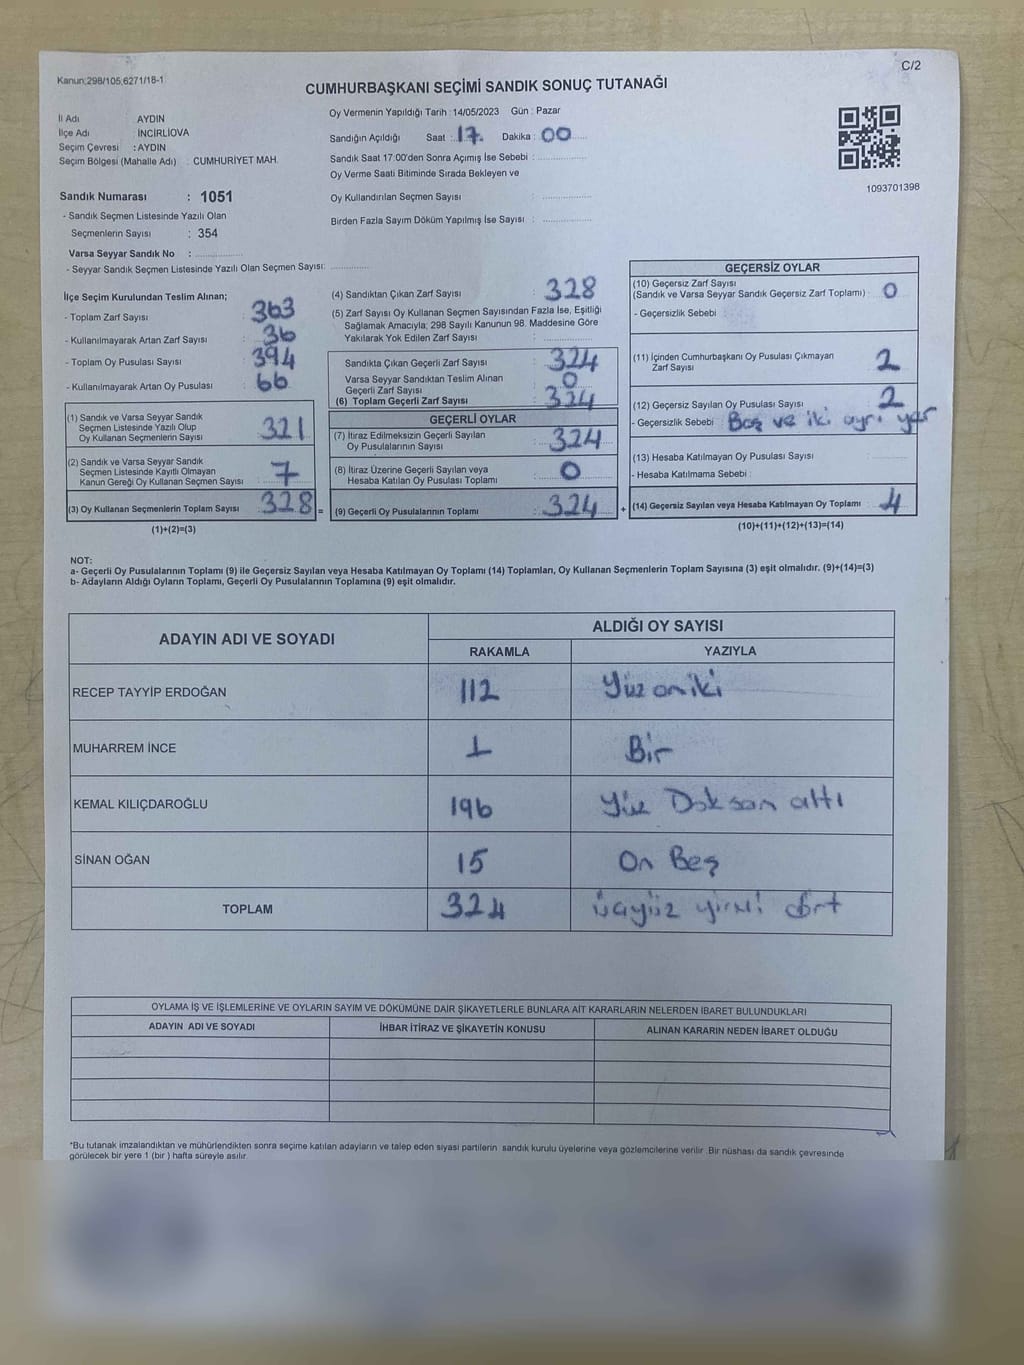 Kanun;298/105,6271/18-1
C/2
CUMHURBAŞKANI SEÇİMİ SANDIK SONUÇ TUTANAĞI
İl Adı : AYDIN
İlçe Adı : İNCİRLİOVA
Seçim Çevresi : AYDIN
Seçim Bölgesi (Mahalle Adı) : CUMHURİYET MAH.
Oy Vermenin Yapıldığı Tarih : 14/05/2023 Gün : Pazar
Sandığın Açıldığı Saat : 17. Dakika : 00
Sandık Saat 17:00'den Sonra Açımış İse Sebebi :
Oy Verme Saati Bitiminde Sırada Bekleyen ve
Oy Kullandırılan Seçmen Sayısı :
Birden Fazla Sayım Döküm Yapılmış İse Sayısı :
1093701398
Sandık Numarası : 1051
- Sandık Seçmen Listesinde Yazılı Olan
Seçmenlerin Sayısı : 354
Varsa Seyyar Sandık No :
- Seyyar Sandık Seçmen Listesinde Yazılı Olan Seçmen Sayısı:
İlçe Seçim Kurulundan Teslim Alınan;
- Toplam Zarf Sayısı : 363
- Kullanılmayarak Artan Zarf Sayısı : 36
- Toplam Oy Pusulası Sayısı : 394
- Kullanılmayarak Artan Oy Pusulası : 66
(1) Sandık ve Varsa Seyyar Sandık
Seçmen Listesinde Yazılı Olup
Oy Kullanan Seçmenlerin Sayısı : 321
(2) Sandık ve Varsa Seyyar Sandık
Seçmen Listesinde Kayıtlı Olmayan
Kanun Gereği Oy Kullanan Seçmen Sayısı : 7
(3) Oy Kullanan Seçmenlerin Toplam Sayısı : 328 =
(1)+(2)=(3)
(4) Sandıktan Çıkan Zarf Sayısı : 328
(5) Zarf Sayısı Oy Kullanan Seçmen Sayısından Fazla İse, Eşitliği
Sağlamak Amacıyla; 298 Sayılı Kanunun 98. Maddesine Göre
Yakılarak Yok Edilen Zarf Sayısı :
Sandıkta Çıkan Geçerli Zarf Sayısı : 324
Varsa Seyyar Sandıktan Teslim Alınan
Geçerli Zarf Sayısı : 0
(6) Toplam Geçerli Zarf Sayısı : 324
GEÇERLİ OYLAR
(7) İtiraz Edilmeksizin Geçerli Sayılan
Oy Pusulalarının Sayısı : 324
(8) İtiraz Üzerine Geçerli Sayılan veya
Hesaba Katılan Oy Pusulası Toplamı : 0
(9) Geçerli Oy Pusulalarının Toplamı : 324 +
GEÇERSİZ OYLAR
(10) Geçersiz Zarf Sayısı
(Sandık ve Varsa Seyyar Sandık Geçersiz Zarf Toplamı) : 0
- Geçersizlik Sebebi :
(11) İçinden Cumhurbaşkanı Oy Pusulası Çıkmayan
Zarf Sayısı : 2
(12) Geçersiz Sayılan Oy Pusulası Sayısı : 2
- Geçersizlik Sebebi : Boş ve iki ayrı yer
(13) Hesaba Katılmayan Oy Pusulası Sayısı :
- Hesaba Katılmama Sebebi :
(14) Geçersiz Sayılan veya Hesaba Katılmayan Oy Toplamı : 4
(10)+(11)+(12)+(13)=(14)
NOT:
a- Geçerli Oy Pusulalarının Toplamı (9) ile Geçersiz Sayılan veya Hesaba Katılmayan Oy Toplamı (14) Toplamları, Oy Kullanan Seçmenlerin Toplam Sayısına (3) eşit olmalıdır. (9)+(14)=(3)
b- Adayların Aldığı Oyların Toplamı, Geçerli Oy Pusulalarının Toplamına (9) eşit olmalıdır.
ADAYIN ADI VE SOYADI
ALDIĞI OY SAYISI
RAKAMLA YAZIYLA
RECEP TAYYİP ERDOĞAN 112 Yüz oniki
MUHARREM İNCE 1 Bir
KEMAL KILIÇDAROĞLU 196 Yüz Doksan altı
SİNAN OĞAN 15 On Beş
TOPLAM 324 üçyüz yirmi dört
OYLAMA İŞ VE İŞLEMLERİNE VE OYLARIN SAYIM VE DÖKÜMÜNE DAİR ŞİKAYETLERLE BUNLARA AİT KARARLARIN NELERDEN İBARET BULUNDUKLARI
ADAYIN ADI VE SOYADI İHBAR İTİRAZ VE ŞİKAYETİN KONUSU ALINAN KARARIN NEDEN İBARET OLDUĞU
*Bu tutanak imzalandıktan ve mühürlendikten sonra seçime katılan adayların ve talep eden siyasi partilerin sandık kurulu üyelerine veya gözlemcilerine verilir. Bir nüshası da sandık çevresinde
görülecek bir yere 1 (bir ) hafta süreyle asılır.